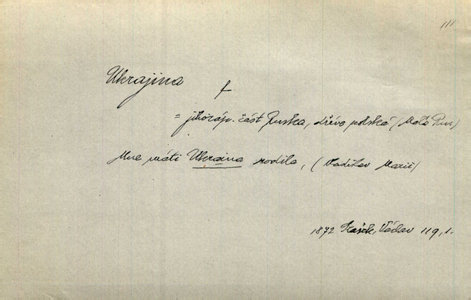 Ukrajina f
= jihozáp. část Ruska, dříve polská (Malá Rus)
Mne máti Ukrajina rodila, (Vladislav
1872 Václav 119, 1.